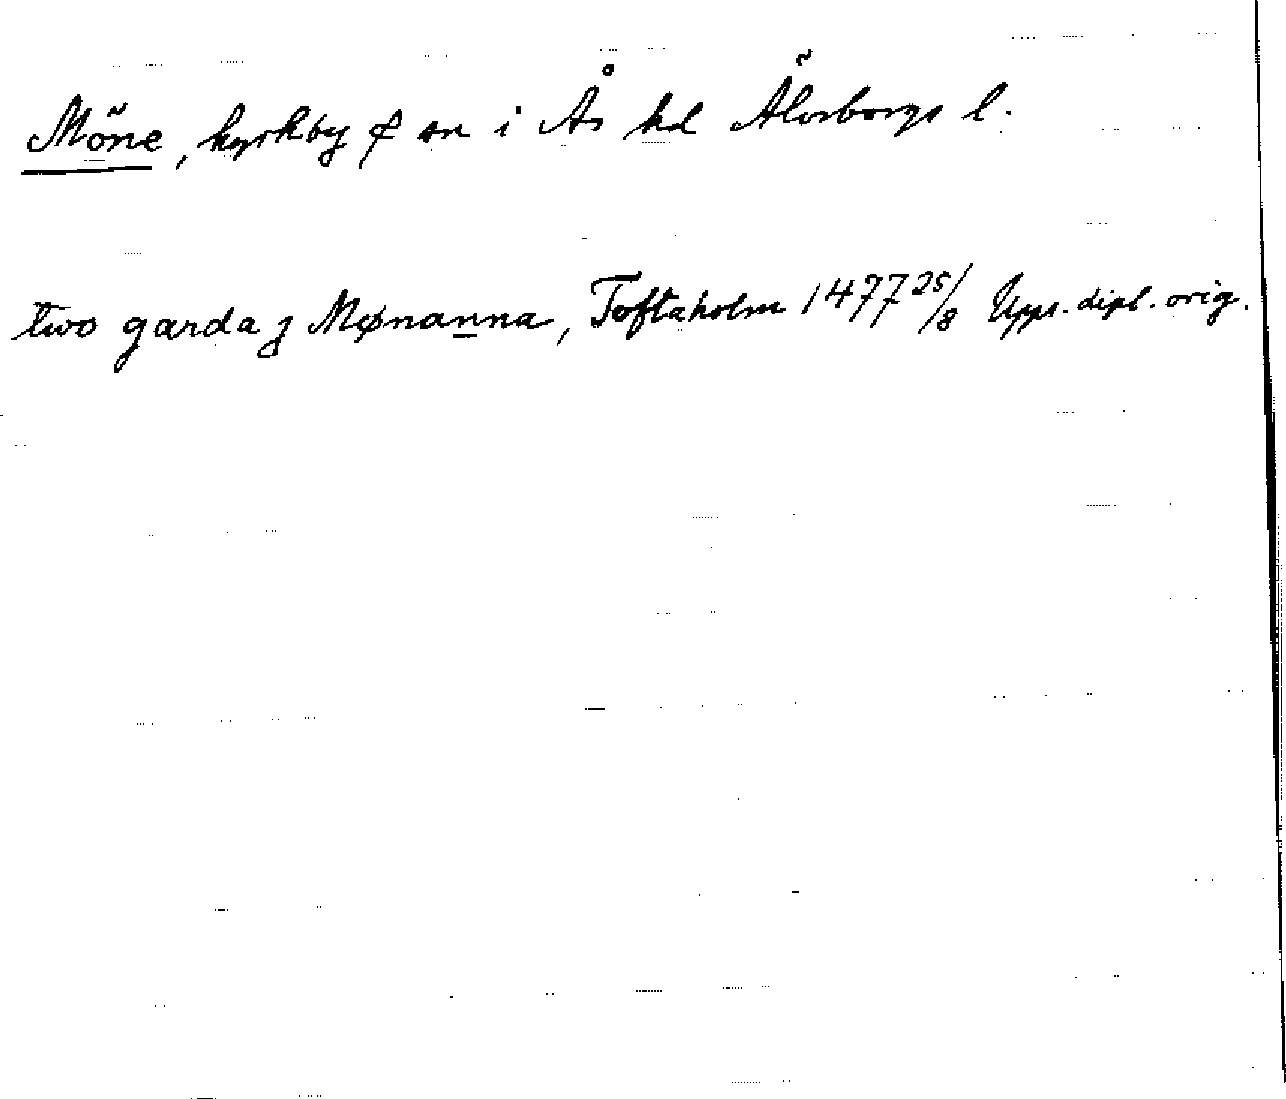 Möne, kyrkby & sn i Ås hd Älvsborgs l.
two garda j Mønanna, Toftaholm 1477 25/8 Upps. dipl. orig.